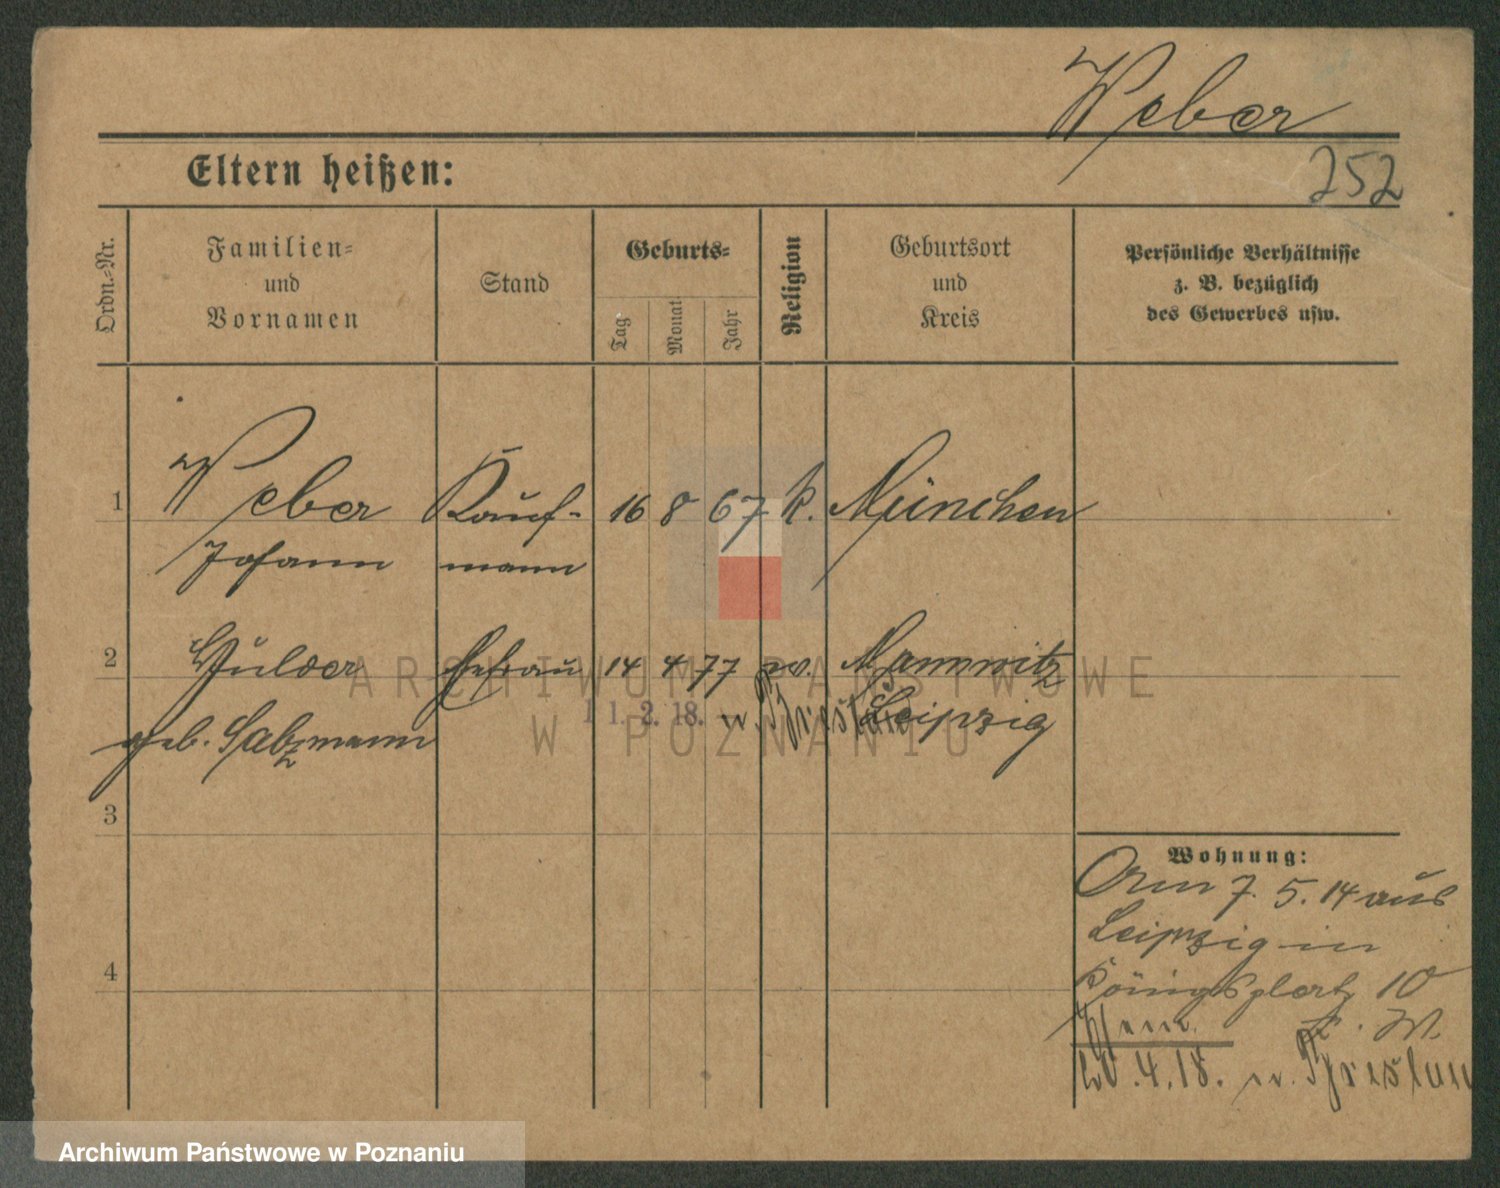 Weber
252
Eltern heißen:
Ordn.-Nr.
Familien-
und
Vornamen
Stand
Geburts-
Tag
Monat
Jahr
Religion
Geburtsort
und
Kreis
Persönliche Verhältnisse
z. B. bezüglich
des Gewerbes usw.
1 Weber Kauf- 16 8 67 k. München
Johann mann
2 Hulder Ehefrau 14 4 77 w.
geb. Salzmann Leipzig
11. 2. 18. n. Breslau
3
4
Wohnung:
Am 7. 5. 14 aus
Leipzig in
Königsplatz 10
b. W.
20.4.18. n. Breslau
ARCHIWUM PAŃSTWOWE
W POZNANIU
Archiwum Państwowe w Poznaniu